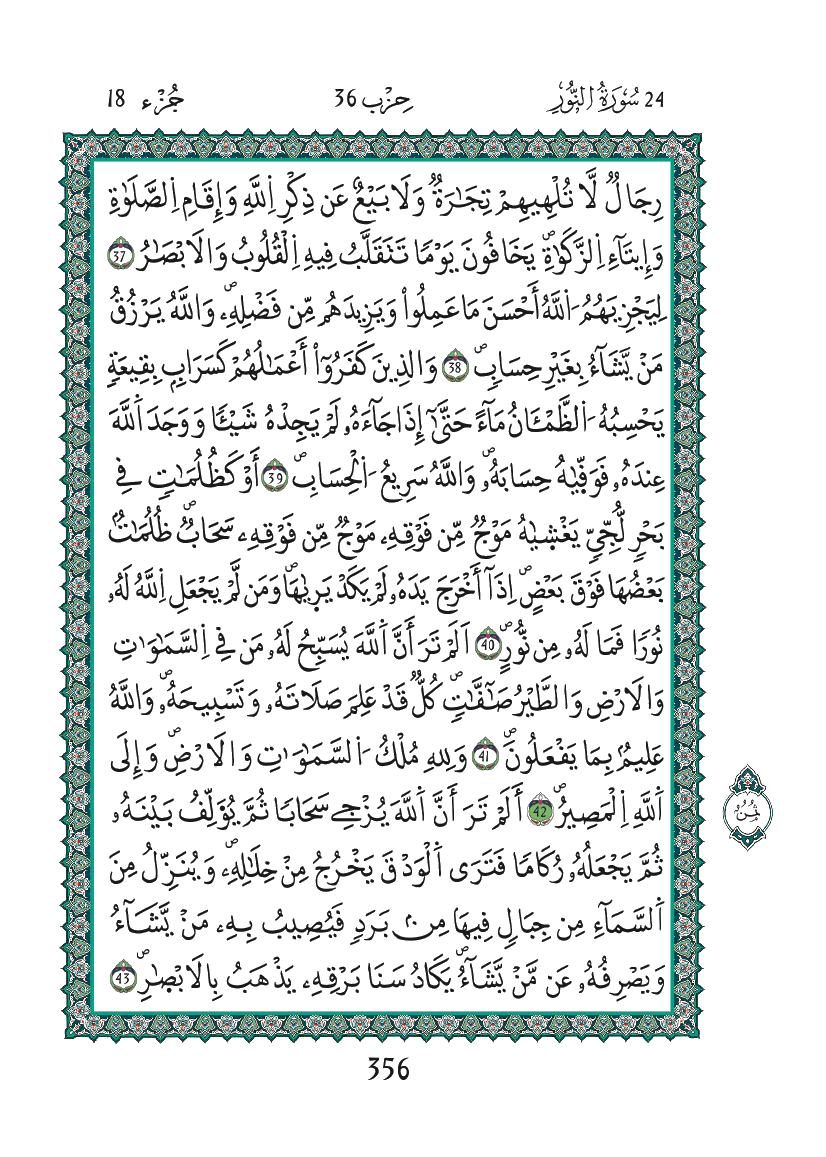 24 سُورَةُ النُّورِ
حِزْب 36
جُزْء 18
رِجَالٌ لَّا تُلْهِيهِمْ تِجَٰرَةٌ وَلَا بَيْعٌ عَن ذِكْرِ اِ۬للَّهِ وَإِقَامِ اِ۬لصَّلَوٰةِ
وَإِيتَآءِ اِ۬لزَّكَوٰةِۖ يَخَافُونَ يَوْمٗا تَتَقَلَّبُ فِيهِ اِ۬لْقُلُوبُ وَالَابْصَٰرُ 37
لِيَجْزِيَهُمُ اُ۬للَّهُ أَحْسَنَ مَا عَمِلُواْ وَيَزِيدَهُم مِّن فَضْلِهِۦۖ وَاللَّهُ يَرْزُقُ
مَنْ يَّشَآءُ بِغَيْرِ حِسَابٖۖ 38 وَالذِينَ كَفَرُوٓاْ أَعْمَٰلُهُمْ كَسَرَابِۢ بِقِيعَةٖ
يَحْسِبُهُ اُ۬لظَّمْـَٔانُ مَآءً حَتَّىٰٓ إِذَا جَآءَهُۥ لَمْ يَجِدْهُ شَيْـٔٗا وَوَجَدَ اَ۬للَّهَ
عِندَهُۥ فَوَفّ۪يٰهُ حِسَابَهُۥۖ وَاللَّهُ سَرِيعُ اُ۬لْحِسَابِۖ 39 أَوْ كَظُلُمَٰتٖ فِے
بَحْرٖ لُّجِّيّٖ يَغْش۪يٰهُ مَوْجٞ مِّن فَوْقِهِۦ مَوْجٞ مِّن فَوْقِهِۦ سَحَابٞۖ ظُلُمَٰتُۢ
بَعْضُهَا فَوْقَ بَعْضٍۖ اِذَآ أَخْرَجَ يَدَهُۥ لَمْ يَكَدْ يَر۪يٰهَاۖ وَمَن لَّمْ يَجْعَلِ اِ۬للَّهُ لَهُۥ
نُورٗا فَمَا لَهُۥ مِن نُّورٍۖ 40 اَلَمْ تَرَ أَنَّ اَ۬للَّهَ يُسَبِّحُ لَهُۥ مَن فِے اِ۬لسَّمَٰوَٰتِ
وَالَارْضِ وَالطَّيْرُ صَٰٓفَّٰتٖۖ كُلّٞ قَدْ عَلِمَ صَلَاتَهُۥ وَتَسْبِيحَهُۥۖ وَاللَّهُ
عَلِيمُۢ بِمَا يَفْعَلُونَۖ 41 وَلِلهِ مُلْكُ اُ۬لسَّمَٰوَٰتِ وَالَارْضِۖ وَإِلَى
اَ۬للَّهِ اِ۬لْمَصِيرُۖ 42 أَلَمْ تَرَ أَنَّ اَ۬للَّهَ يُزْجِے سَحَابٗا ثُمَّ يُؤَلِّفُ بَيْنَهُۥ
ثُمَّ يَجْعَلُهُۥ رُكَامٗا فَتَرَى اَ۬لْوَدْقَ يَخْرُجُ مِنْ خِلَٰلِهِۦۖ وَيُنَزِّلُ مِنَ
اَ۬لسَّمَآءِ مِن جِبَالٖ فِيهَا مِنۢ بَرَدٖ فَيُصِيبُ بِهِۦ مَنْ يَّشَآءُ
وَيَصْرِفُهُۥ عَن مَّنْ يَّشَآءُۖ يَكَادُ سَنَا بَرْقِهِۦ يَذْهَبُ بِالَابْصٰ۪رِۖ 43
ثمن
356